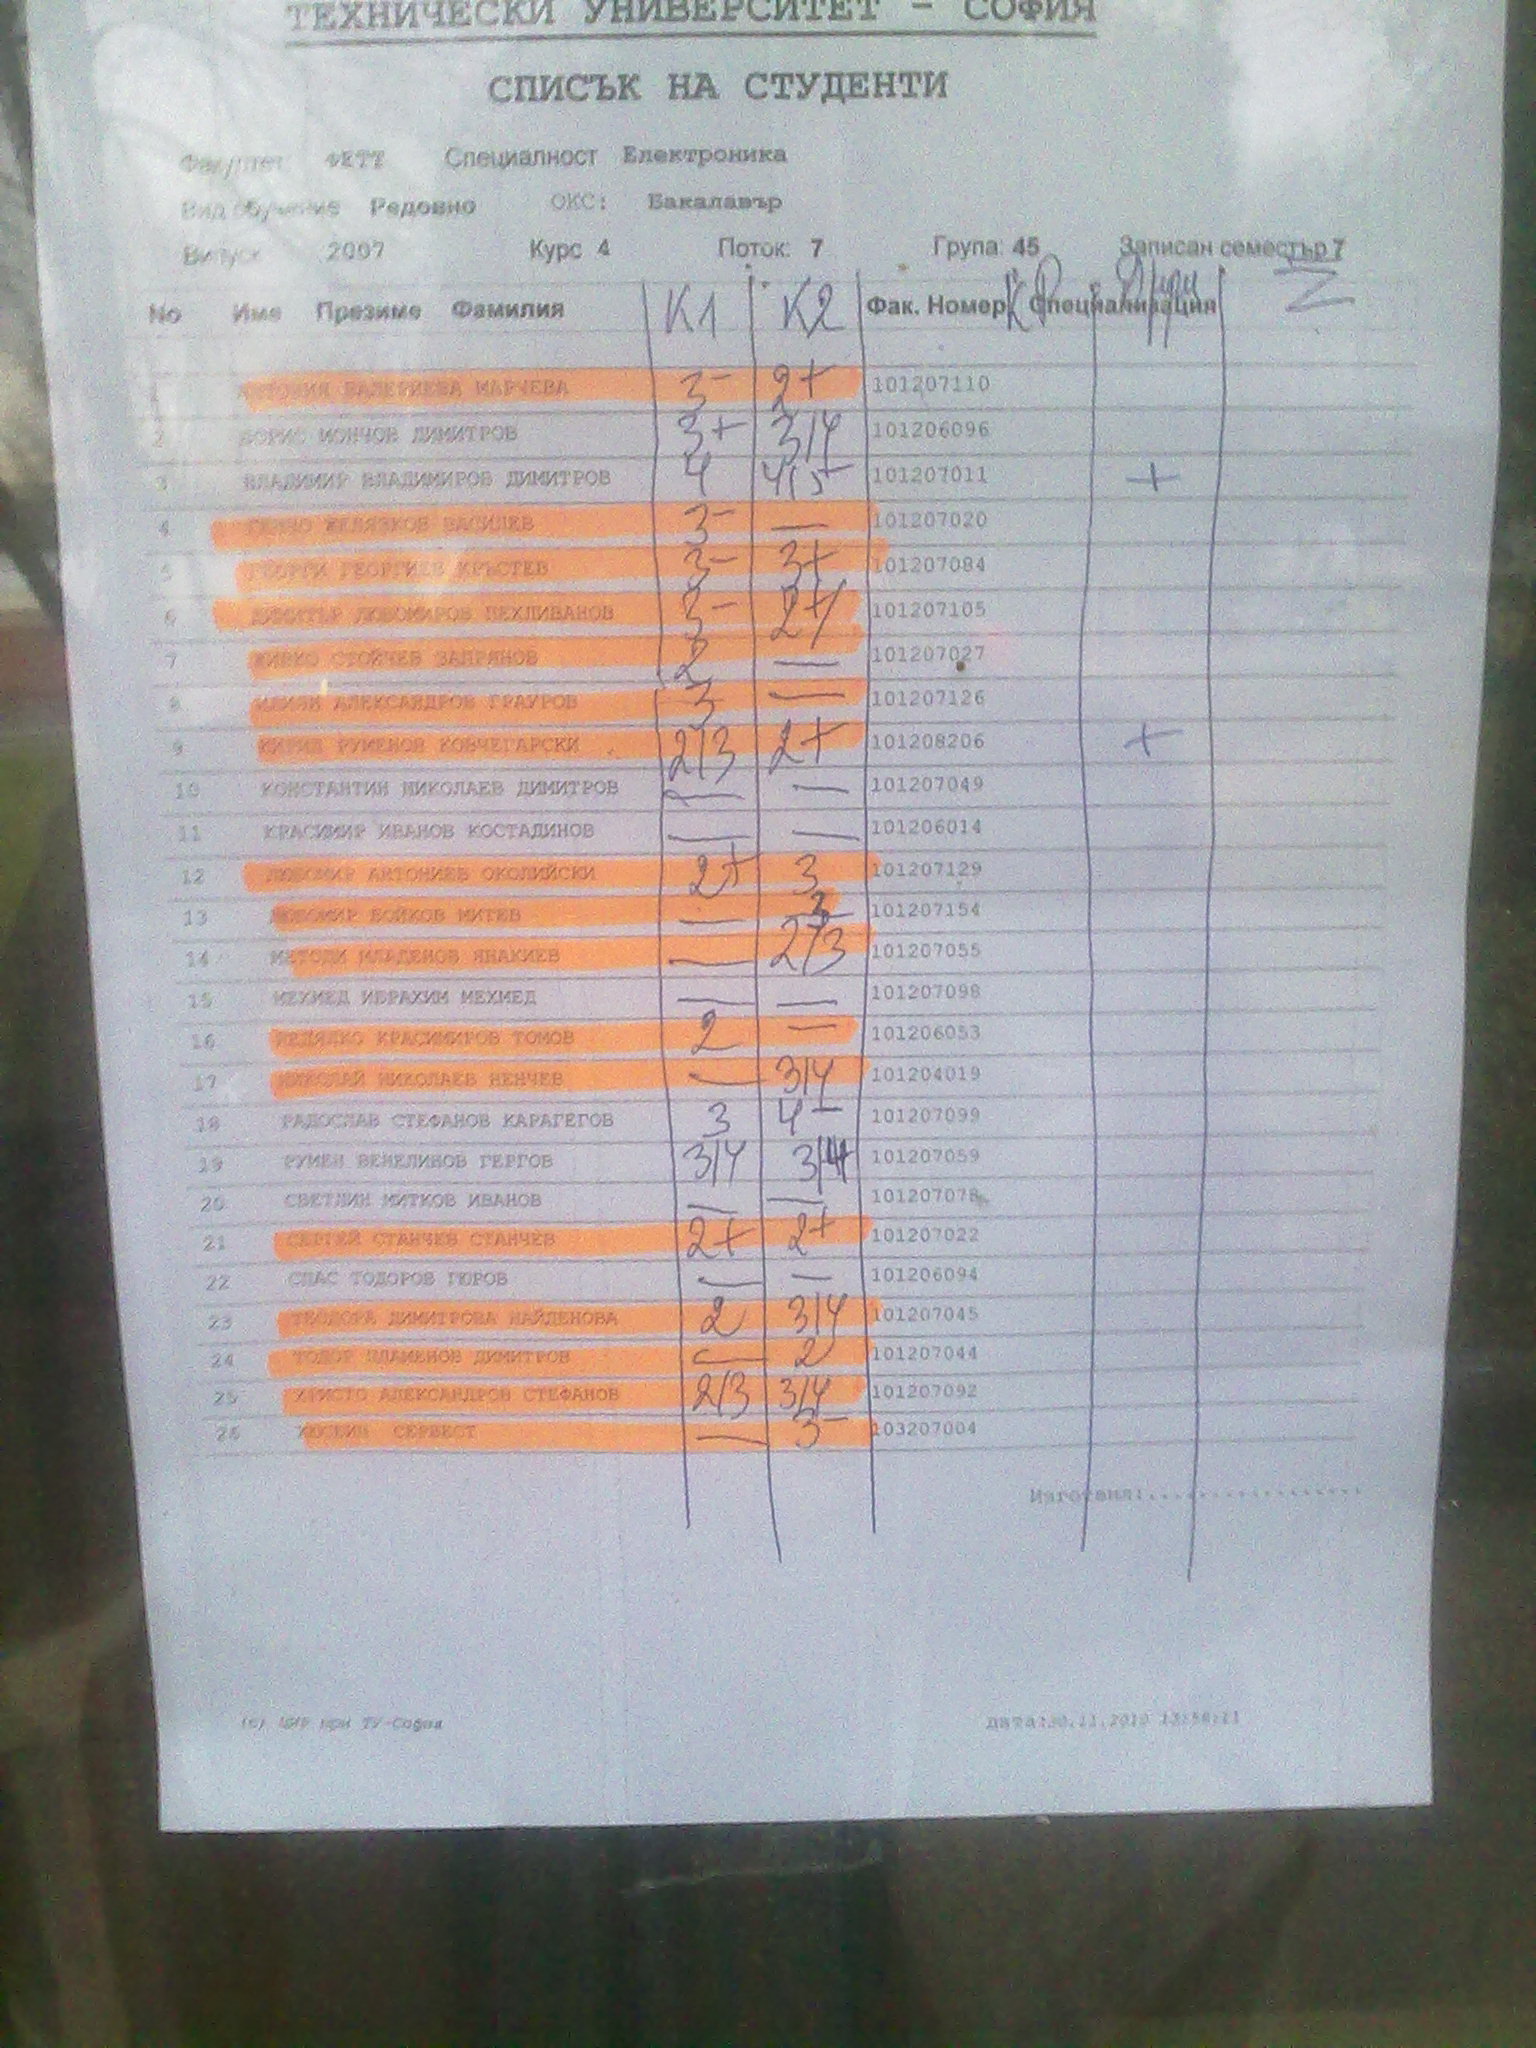 ТЕХНИЧЕСКИ УНИВЕРСИТЕТ - СОФИЯ
СПИСЪК НА СТУДЕНТИ
Факултет ФЕТТ Специалност Електроника
Вид обучение Редовно ОКС: Бакалавър
Випуск 2007 Курс 4 Поток: 7 Група: 45 Записан семестър 7
No Име Презиме Фамилия К1 К2 Фак. Номер Специализация Σ
1 ВАЛЕРИЕВА МАРЧЕВА 3- 2+ 101207110
2 БОРИС ЙОНЧОВ ДИМИТРОВ 3+ 3/4 101206096
3 ВЛАДИМИР ВЛАДИМИРОВ ДИМИТРОВ 4 4/5 101207011 +
4 ЖЕЛЯЗКОВ ВАСИЛЕВ 3- — 101207020
5 ГЕОРГИ ГЕОРГИЕВ КРЪСТЕВ 3- 3+ 101207084
6 ДИМИТЪР ЛЮБОМИРОВ ПЕХЛИВАНОВ 3- 2+ 101207105
7 ЖИВКО СТОЙЧЕВ ЗАПРЯНОВ 2 — 101207027
8 АЛЕКСАНДРОВ ГРАУРОВ 3 — 101207126
9 КИРИЛ РУМЕНОВ КОВЧЕГАРСКИ 2/3 2+ 101208206 +
10 КОНСТАНТИН НИКОЛАЕВ ДИМИТРОВ — — 101207049
11 КРАСИМИР ИВАНОВ КОСТАДИНОВ — — 101206014
12 ЛЮБОМИР АНТОНИЕВ ОКОЛИЙСКИ 2+ 3 101207129
13 ЛЮБОМИР БОЙКОВ МИТЕВ — 3- 101207154
14 МЕТОДИ МЛАДЕНОВ ЯНАКИЕВ — 2/3 101207055
15 МЕХМЕД ИБРАХИМ МЕХМЕД — — 101207098
16 НЕДЯЛКО КРАСИМИРОВ ТОМОВ 2 — 101206053
17 НИКОЛАЙ НИКОЛАЕВ НЕНЧЕВ — 3/4 101204019
18 РАДОСЛАВ СТЕФАНОВ КАРАГЕГОВ 3 4- 101207099
19 РУМЕН ВЕНЕЛИНОВ ГЕРГОВ 3/4 3/4 101207059
20 СВЕТЛИН МИТКОВ ИВАНОВ — — 101207078
21 СЕРГЕЙ СТАНЧЕВ СТАНЧЕВ 2+ 2+ 101207022
22 СПАС ТОДОРОВ ГЮРОВ — — 101206094
23 ТЕОДОРА ДИМИТРОВА НАЙДЕНОВА 2 3/4 101207045
24 ТОДОР ПЛАМЕНОВ ДИМИТРОВ — 2 101207044
25 ХРИСТО АЛЕКСАНДРОВ СТЕФАНОВ 2/3 3/4 101207092
26 СЕРБЕСТ — 3- 103207004
Изготвил:..................
(c) ЦИР при ТУ-София Дата:30.11.2010